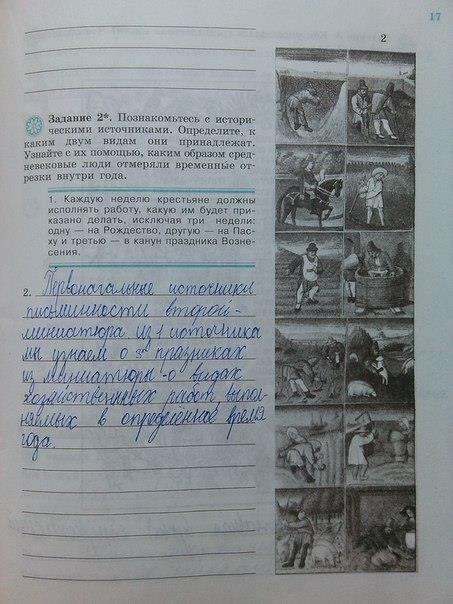 17
2
Задание 2*. Познакомьтесь с истори-
ческими источниками. Определите, к
каким двум видам они принадлежат.
Узнайте с их помощью, каким образом сред-
невековые люди отмеряли временные от-
резки внутри года.
1. Каждую неделю крестьяне должны
исполнять работу, какую им будет при-
казано делать, исключая три недели:
одну — на Рождество, другую — на Пас-
ху и третью — в канун праздника Возне-
сения.
2. Первоначальные источники
письменности второй-
миниатюра из 1 источника
мы узнаем о 3х праздниках
из миниатюры-о видах
хозяйственных работ, выпол-
няемых в определённое время
года.